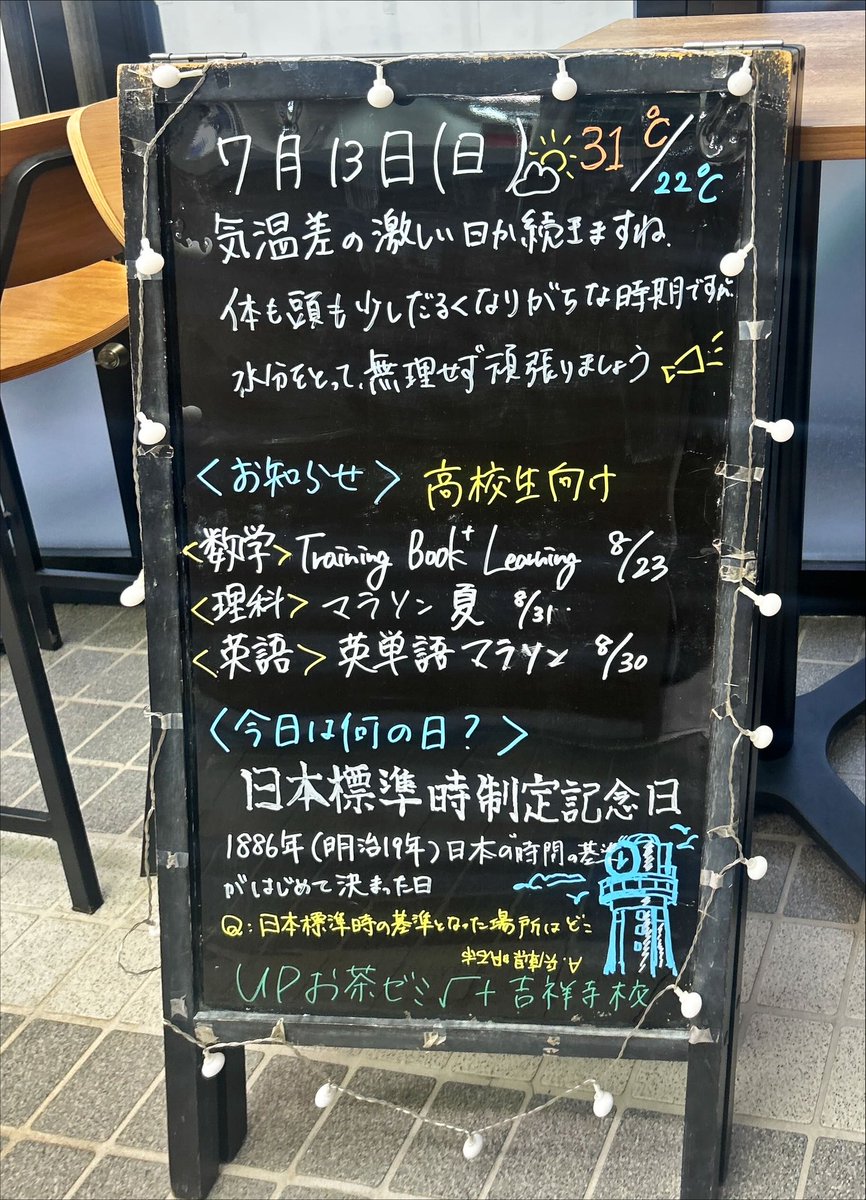 7月13日(日) 31℃/22℃
気温差の激しい日が続きますね.
体も頭も少しだるくなりがちな時期ですが
水分をとって、無理せず頑張りましょう
<お知らせ> 高校生向け
<数学> Training Book⁺ Learning 8/23
<理科> マラソン夏 8/31
<英語> 英単語マラソン 8/30
<今日は何の日?>
日本標準時制定記念日
1886年(明治19年)日本の時間の基準
がはじめて決まった日
Q:日本標準時の基準となった場所はどこ
A.兵庫県明石市
UPお茶ゼミ√+ 吉祥寺校